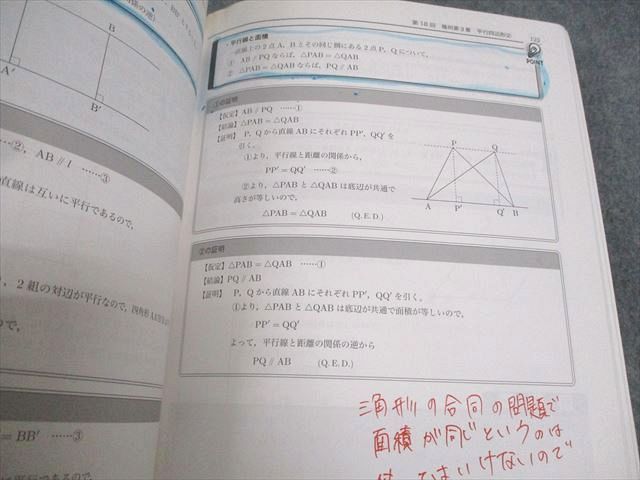 係の逆)
A′
B′
……②, AB // l ……③
直線は互いに平行であるので,
2 組の対辺が平行なので, 四角形
ので,
= BB′ ……③
に平行であるので,
第 18 回 幾何第 3 章 平行四辺形② 123
平行線と面積
POINT
一直線上の 2 点 A, B とその同じ側にある 2 点 P, Q について,
① AB // PQ ならば, △PAB = △QAB
② △PAB = △QAB ならば, PQ // AB
①の証明
【仮定】 AB // PQ ……①
【結論】 △PAB = △QAB
【証明】 P, Q から直線 AB にそれぞれ PP′, QQ′ を
引く。
①より, 平行線と距離の関係から,
PP′ = QQ′ ……②
②より, △PAB と △QAB は底辺が共通で
高さが等しいので,
△PAB = △QAB (Q.E.D.)
P Q
A P′ Q′ B
②の証明
【仮定】 △PAB = △QAB ……①
【結論】 PQ // AB
【証明】 P, Q から直線 AB にそれぞれ PP′, QQ′ を引く。
①より, △PAB と △QAB は底辺が共通で面積が等しいので,
PP′ = QQ′
よって, 平行線と距離の関係の逆から
PQ // AB (Q.E.D.)
三角形の合同の問題で
面積が同じというのは
使ってはいけないので